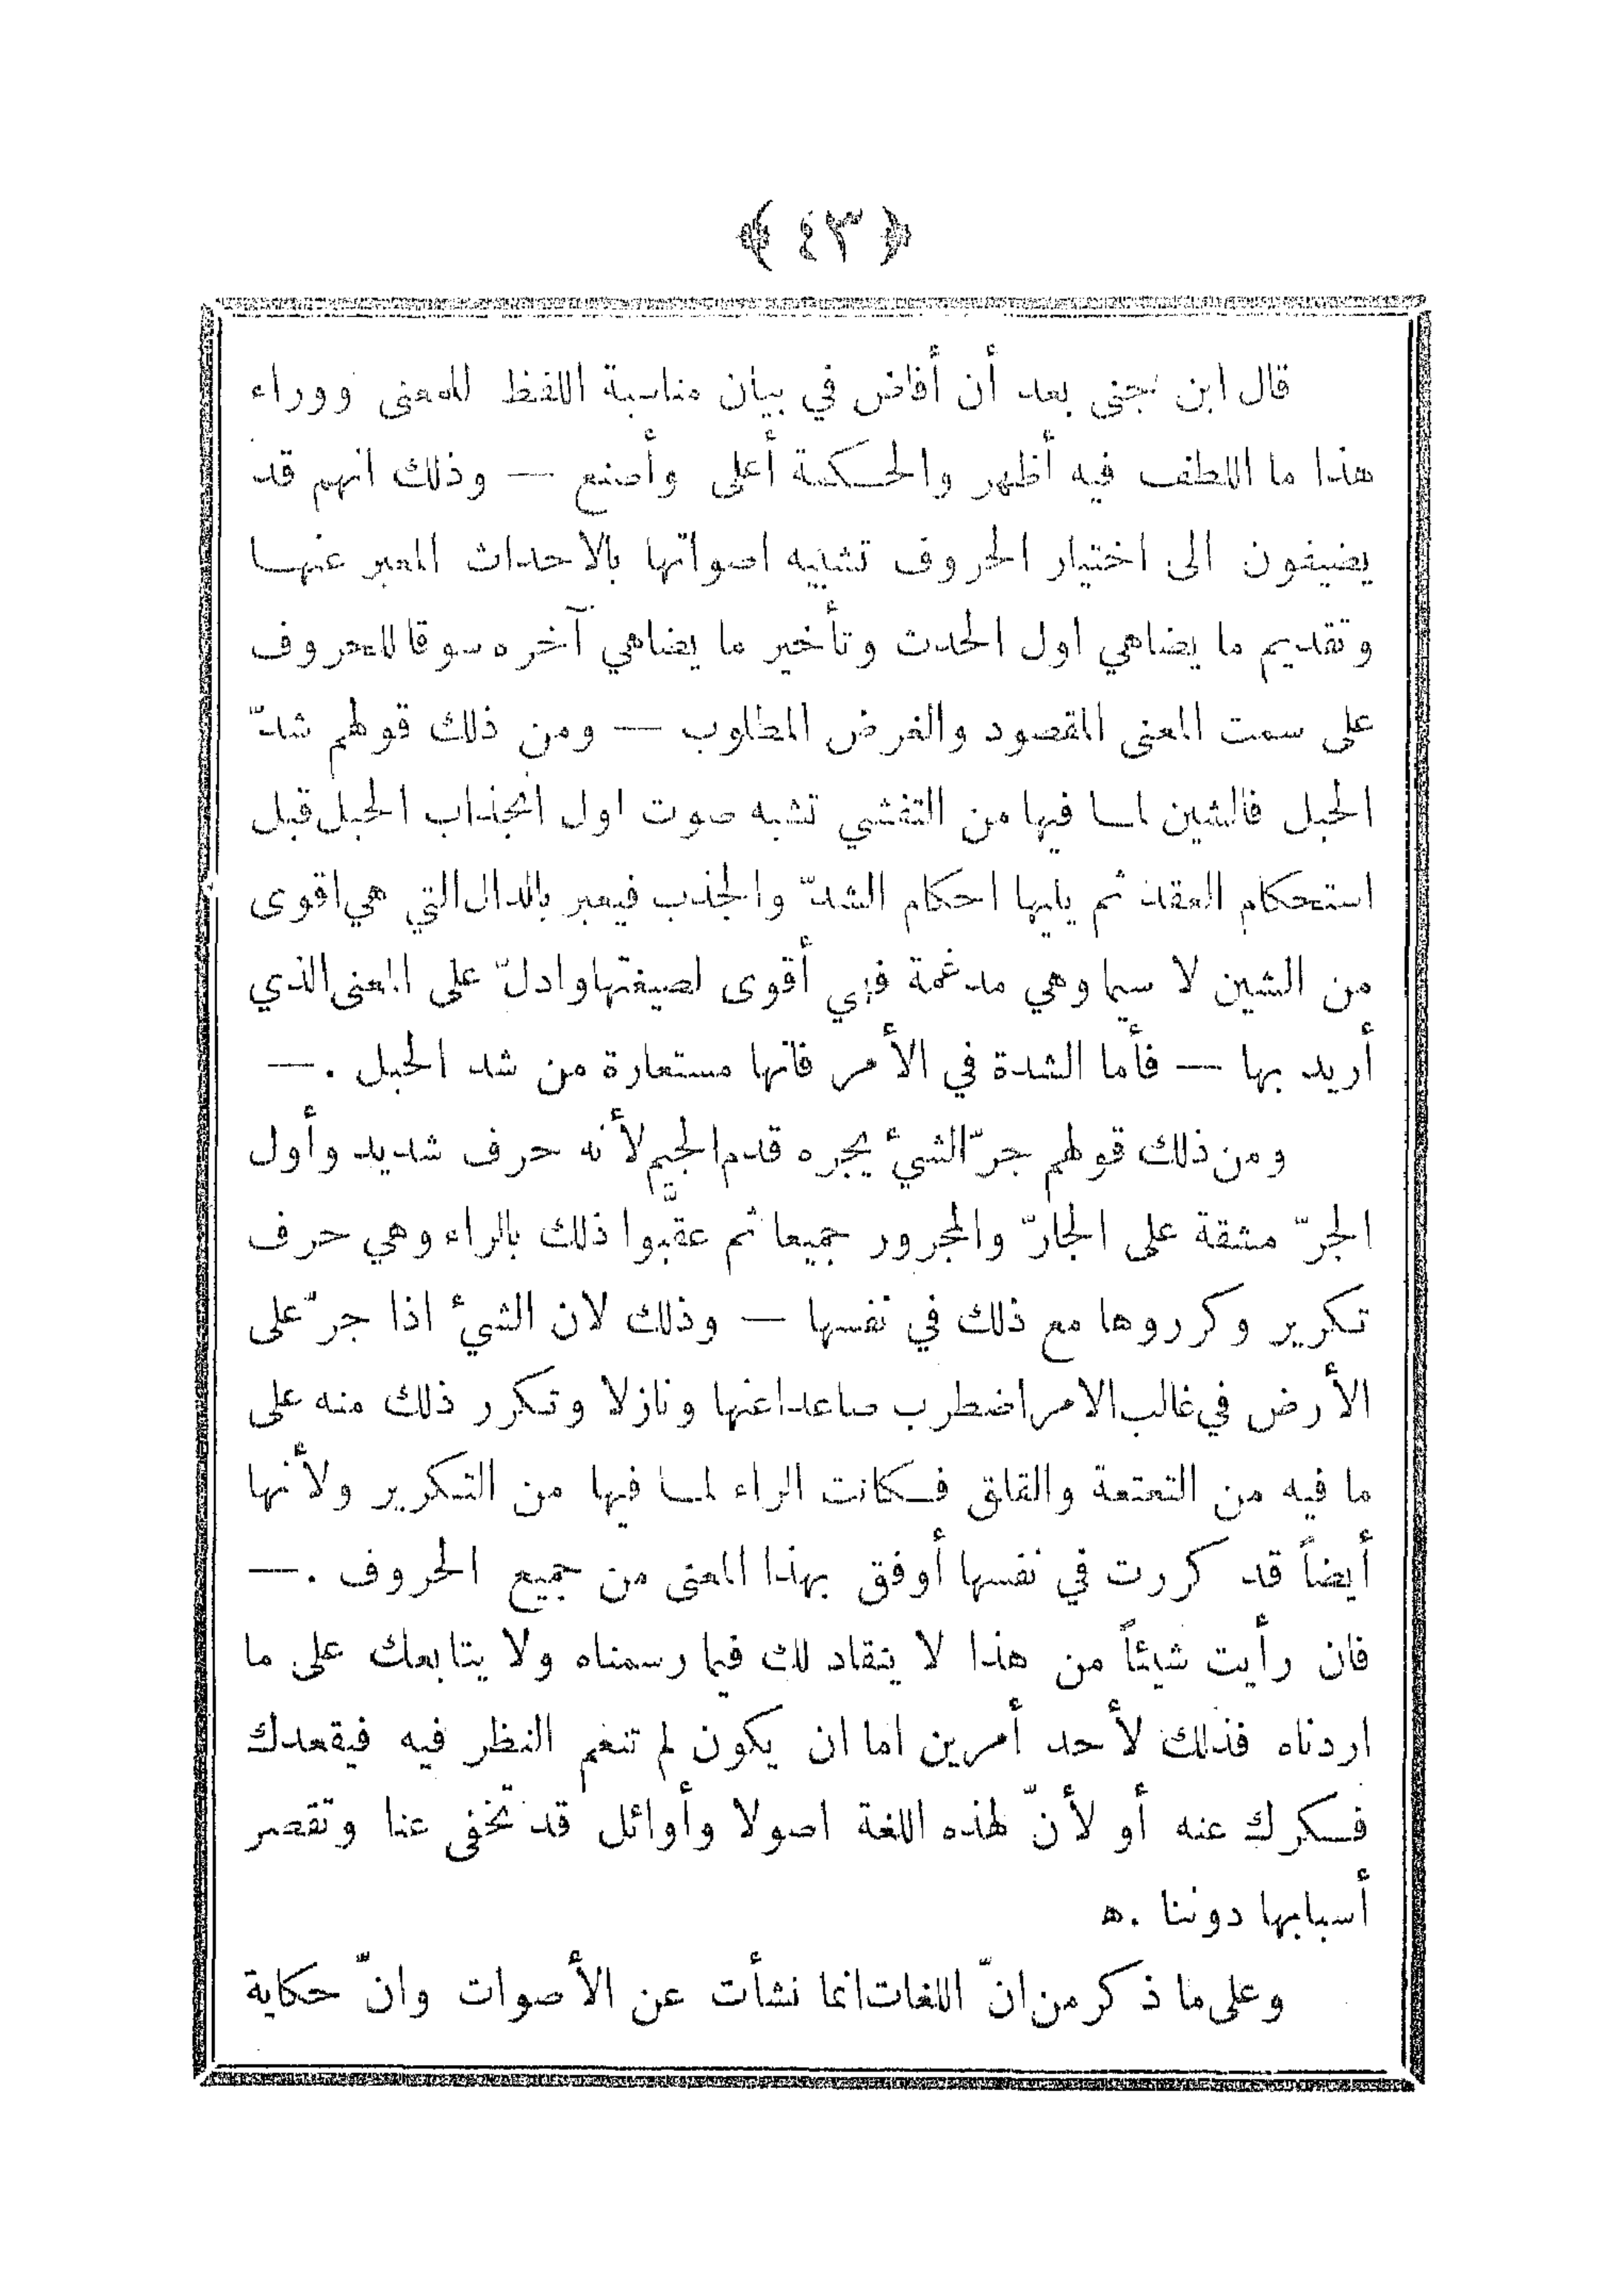 ﴿ ٤٣ ﴾
قال ابن جنى بعد أن أفاض في بيان مناسبة اللفظ للمعنى ووراء
هذا ما اللطف فيه أظهر والحكمة أعلى وأصنع — وذلك انهم قد
يضيفون الى اختيار الحروف تشبيه اصواتها بالاحداث المعبر عنها
وتقديم ما يضاهي اول الحدث وتأخير ما يضاهي آخره سوقا للحروف
على سمت المعنى المقصود والغرض المطلوب — ومن ذلك قولهم شدّ
الحبل فالشين لما فيها من التفشي تشبه صوت اول انجذاب الحبل قبل
استحكام العقد ثم يليها احكام الشدّ والجذب فيعبر بالدال التي هي اقوى
من الشين لا سيما وهي مدغمة فهي أقوى لصيغتها وادلّ على المعنى الذي
أريد بها — فأما الشدة في الأمر فانها مستعارة من شد الحبل . —
ومن ذلك قولهم جرّ الشيء يجره قدم الجيم لأنه حرف شديد وأول
الجرّ مشقة على الجارّ والمجرور جميعا ثم عقَّبوا ذلك بالراء وهي حرف
تكرير وكرروها مع ذلك في نفسها — وذلك لان الشيء اذا جرّ على
الأرض في غالب الامر اضطرب صاعدا عنها ونازلا وتكرر ذلك منه على
ما فيه من التعتعة والقلق فكانت الراء لما فيها من التكرير ولأنها
أيضاً قد كررت في نفسها أوفق بهذا المعنى من جميع الحروف . —
فان رأيت شيئاً من هذا لا ينقاد لك فيما رسمناه ولا يتابعك على ما
اردناه فذلك لأحد أمرين اما ان يكون لم تنعم النظر فيه فيقعدك
فكرك عنه أو لأنّ لهذه اللغة اصولا وأوائل قد تخفى عنا وتقصر
أسبابها دوننا .ه
وعلى ما ذكر من انّ اللغات انما نشأت عن الأصوات وانّ حكاية